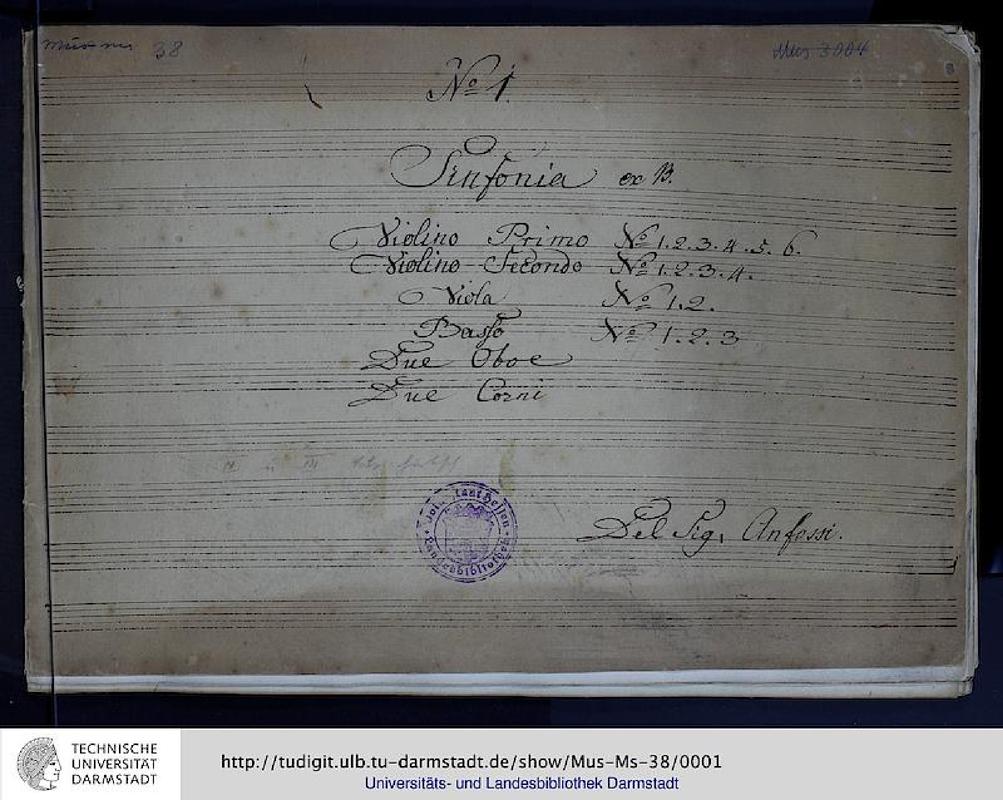 Mus ms 38
Mus 3004
No 1.
Sinfonia ex B.
Violino Primo No 1. 2. 3. 4. 5. 6.
Violino Secondo No 1. 2. 3. 4.
Viola No 1. 2.
Basso No 1. 2. 3
Due Oboe
Due Corni
IV u III
Del Sig. Anfossi.
Hessen
Landesbibliothek
TECHNISCHE
UNIVERSITÄT
DARMSTADT
http://tudigit.ulb.tu-darmstadt.de/show/Mus-Ms-38/0001
Universitäts- und Landesbibliothek Darmstadt